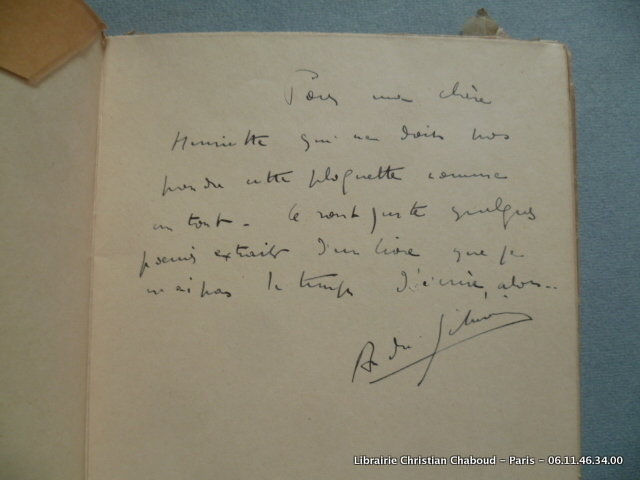 Pour ma chère
Henriette qui ne doit pas
prendre cette plaquette comme
un tout - Ce sont juste quelques
poèmes extraits d'un livre que je
n'ai pas le temps d'écrire, alors..
André
Librairie Christian Chaboud - Paris - 06.11.46.34.00